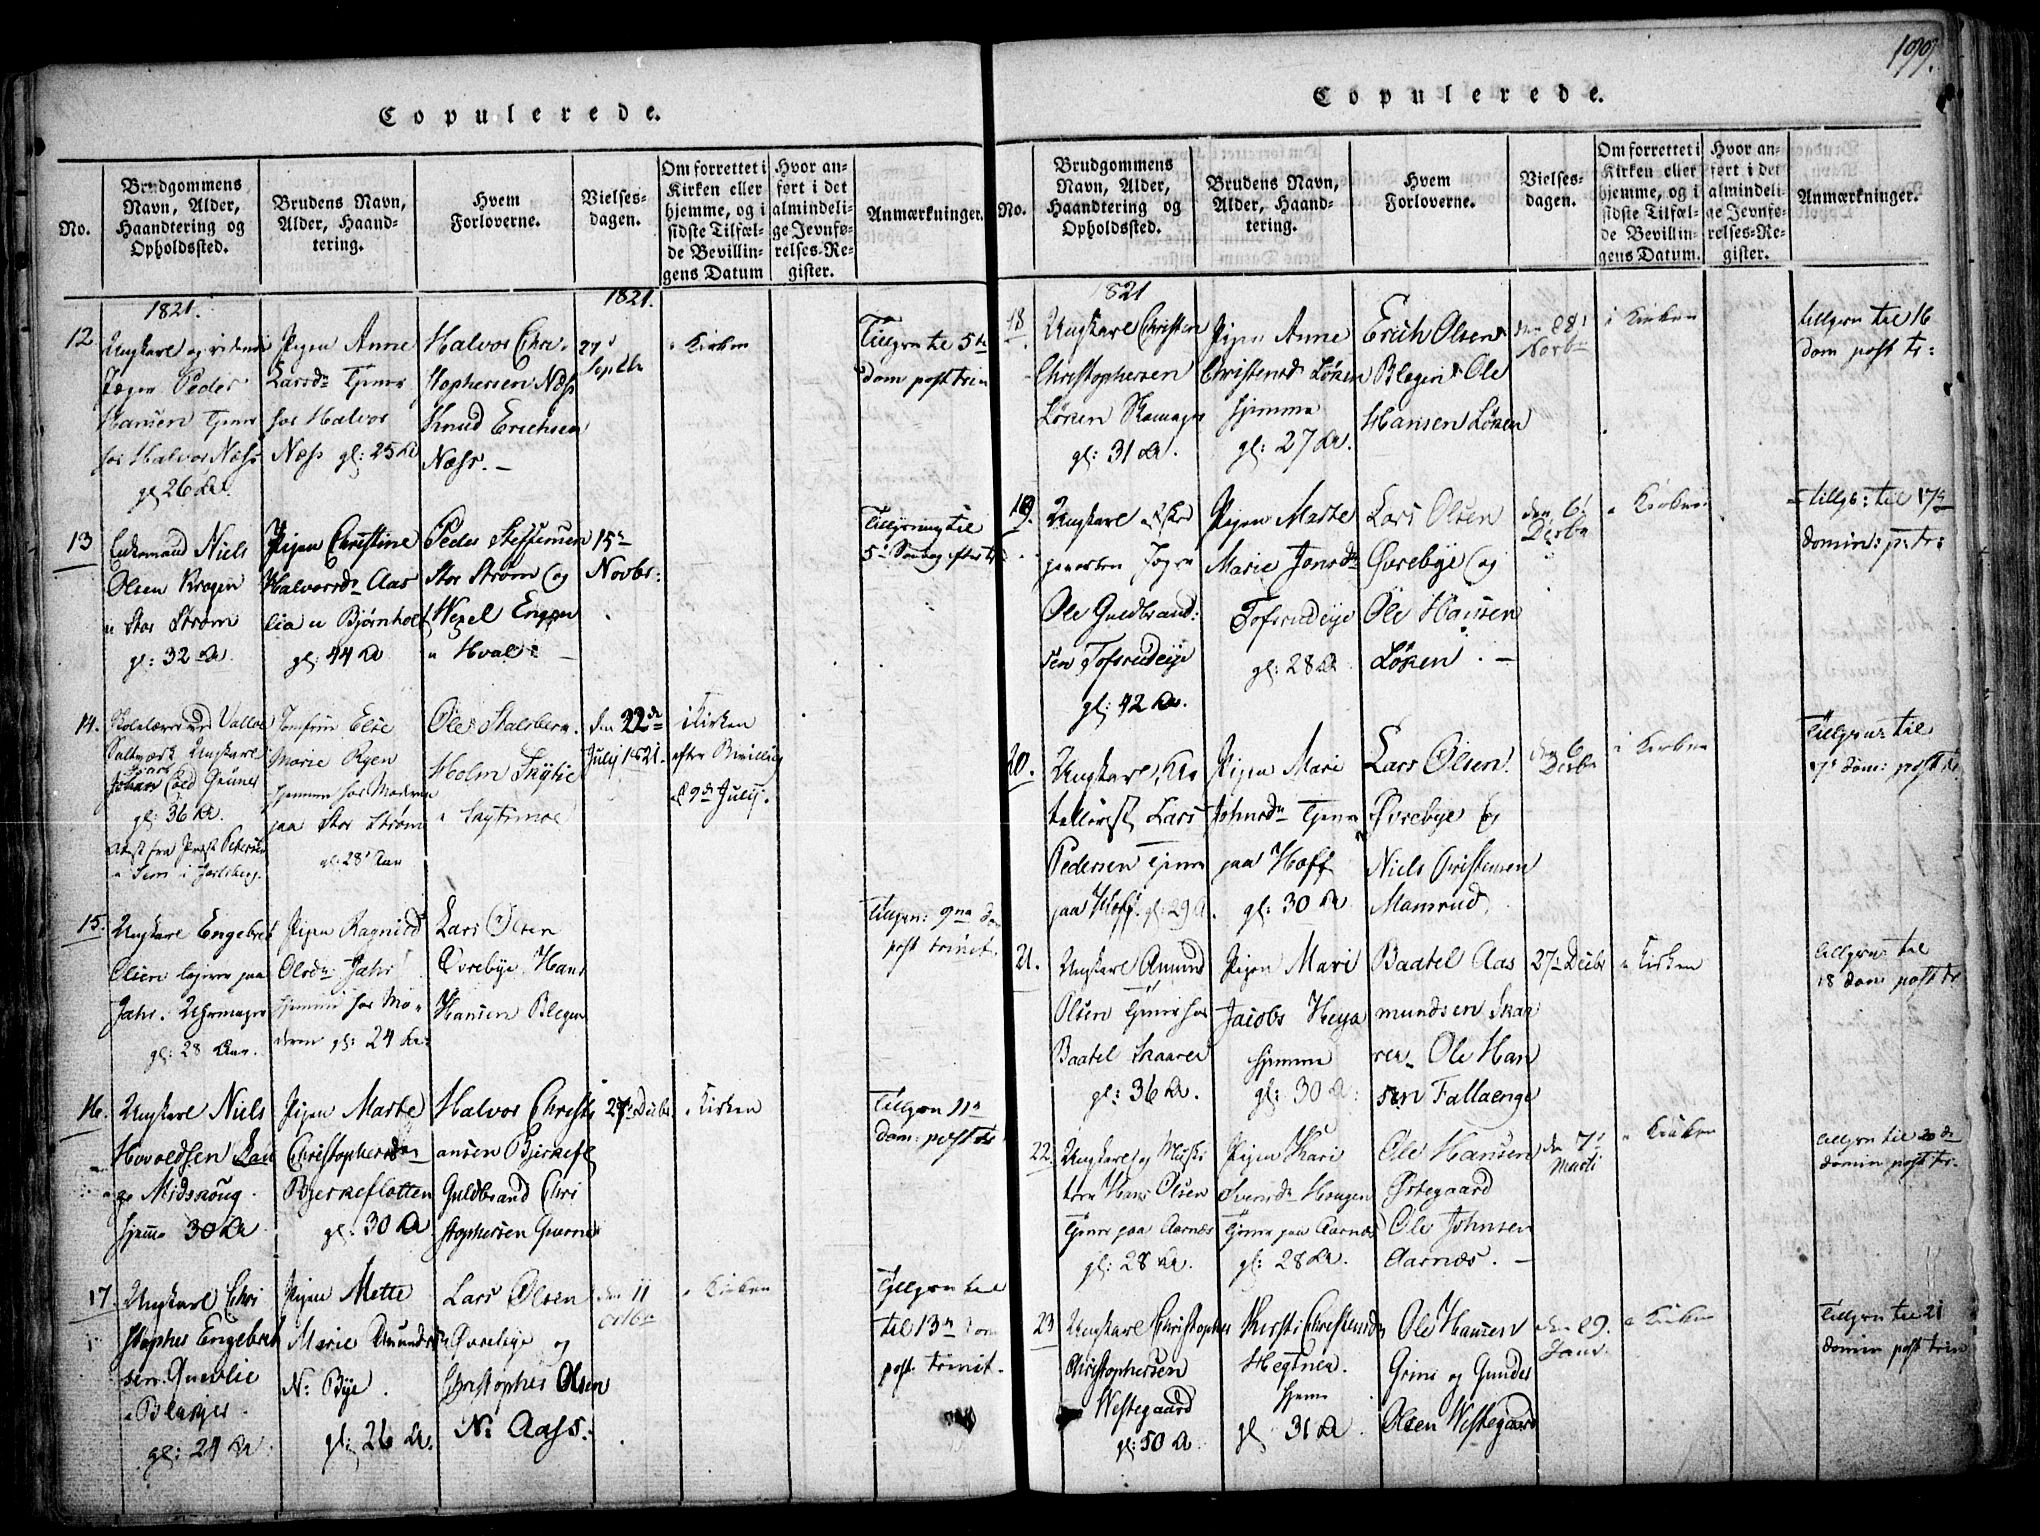 199.
Copulerede.
No.
Brudgommens Navn, Alder, Haandtering og Opholdssted.
Brudens Navn, Alder, Haandtering.
Hvem Forloverne.
Vielses-dagen.
Om forrettet i Kirken eller hjemme, og i sidste Tilfælde Bevillingens Datum
Hvor anført i det almindelige Jevnførelses-Register.
Anmærkninger.
1821.
1821.
12
Ungkarl og
Jæger Peder
Hansen Tjener
hos Halvor Næss
gl 26 Aar
Pigen Anne
Larsdr Tjener
hos Halvor
Næss gl: 25 Aar
Halvor Chri-
stophersen Næss
Knud Erichsen
Næss. —
27
Septbr
i Kirken
Tillysn til 5te
dom post trin
13
Enkemand Niels
Olsen Kragen
Stor Strøm
gl: 32 Aar
Pigen Christine
Halvorsdr Aas
lia Bjørnholt
gl: 44 Aar
Peder Steffensen
Stor Strøm og
Wexel Enggen
Hval
15
Novbr:
Tillysning til
5 Søndag efter
14.
Skolelærer ved Valloe
Saltværk Ungkarl
Johan Cold Gruner
gl: 36 Aar.
Attest fra Præst Petersen
Sem i Jarlsberg.
Jomfrue Else
Marie Ryen
hjemme hos Moderen
paa Stor Strøm
gl: 28 Aar
Ole Stalsberg
Holm
Sagtimoe
den 22de
July 1821.
i Kirken
efter Bevilling
9de July.
15.
Ungkarl Engebret
Olsen logerer paa
Jahr. Uhrmager
gl: 28 Aar.
Pigen Ragnild
Olsdr Jahr
hjemme hos Mo-
deren gl: 24 Aar
Lars Olsen
Øvrebye. Hans
Hansen Blegen
Tillysn: 9na dom
post trinit.
16.
Ungkarl Niels
Hovoldsen Lau
Midskoug.
hjemme 30 Aar
Pigen Marte
Christophersdr
Bjerkeflotten
gl: 30 Aar
Halvor Christi
ansen Bjerkefl
Guldbrand Chri
stophersen
27 Decbr.
i Kirken
Tillysn 11
dom: post tr
17.
Ungkarl Chri
stopher Engebret
sen
gl: 24 Aar
Pigen Mette
Marie Amundsdr
N: Bye.
gl: 26 Aar.
Lars Olsen
Øvrebye og
Christopher Olsen
N: Aass.
den 11
Octbr
i Kirken
Tillysn til
til 13 dom
post trinit.
Copulerede.
No.
Brudgommens Navn, Alder, Haandtering og Opholdssted.
Brudens Navn, Alder, Haandtering.
Hvem Forloverne.
Vielses-dagen.
Om forrettet i Kirken eller hjemme, og i sidste Tilfælde Bevillingens Datum.
Hvor anført i det almindelige Jevnførelses-Register.
Anmærkninger.
1821
18.
Ungkarl Christen
Christophersen
Løken Skomager
gl: 31 Aar.
Pigen Anne
Christensdr Løken
hjemme
gl: 27 Aar.
Erich Olsen
Blegen Ole
Hansen Løken
den 28
Novbr
i Kirken
tillysn til 16
dom post tr:
19.
Ungkarl
Jæger
Ole Guldbrand:
sen Tofsrudeije
gl: 42 Aar.
Pigen Marte
Marie Jensdr
Tofsrudeije
gl: 28 Aar
Lars Olsen
Øvrebye og
Ole Hansen
Løken. —
den 6
Decbr
i Kirken
tillys: til 17
domin: p: tr:
20.
Ungkarl
Lars
Pedersen tjener
paa Hoff. gl: 29 A.
Pigen Mari
Johnsdr Tjener
paa Hoff
gl: 30 Aar
Lars Olsen
Øvrebye og
Niels Christensen
Mamrud.
den 6
Decbr
i Kirken
Tillysn til
17 dom: post tr
21.
Ungkarl Amund
Olsen tjener hos
Baatel Skaarer
gl: 36 Aar.
Pigen Mari
Jacobs Heya
hjemme
gl: 30 Aar:
Baatel Aas
mundsen Skaa
rer Ole Han
sen Fallaenge
27 Decbr
i Kirken
tillysn: til
18 dom: post tr
22.
Ungkarl og
Hans Olsen
Tjener paa Aarnæs
gl: 28 Aar.
Pigen Kari
Svensdr Hougen
Tjener paa Aarnæs
gl: 28 Aar.
Ole Hansen
Østegaard
Ole Johnsen
Aarnæs. —
den 7
Marti
i Kirken
tillysn til 20de
domin post tr.
23
Ungkarl Christopher
Christophersen
Westegaard
gl: 50 Aar
Kersti Christensdr
Hegtnea.
hjem
gl 31 Aar.
Ole Hansen
Grini og Gunder
Olsen Westegaard
den 29.
Janr.
i Kirken
Tillysn til 21
domin post trin